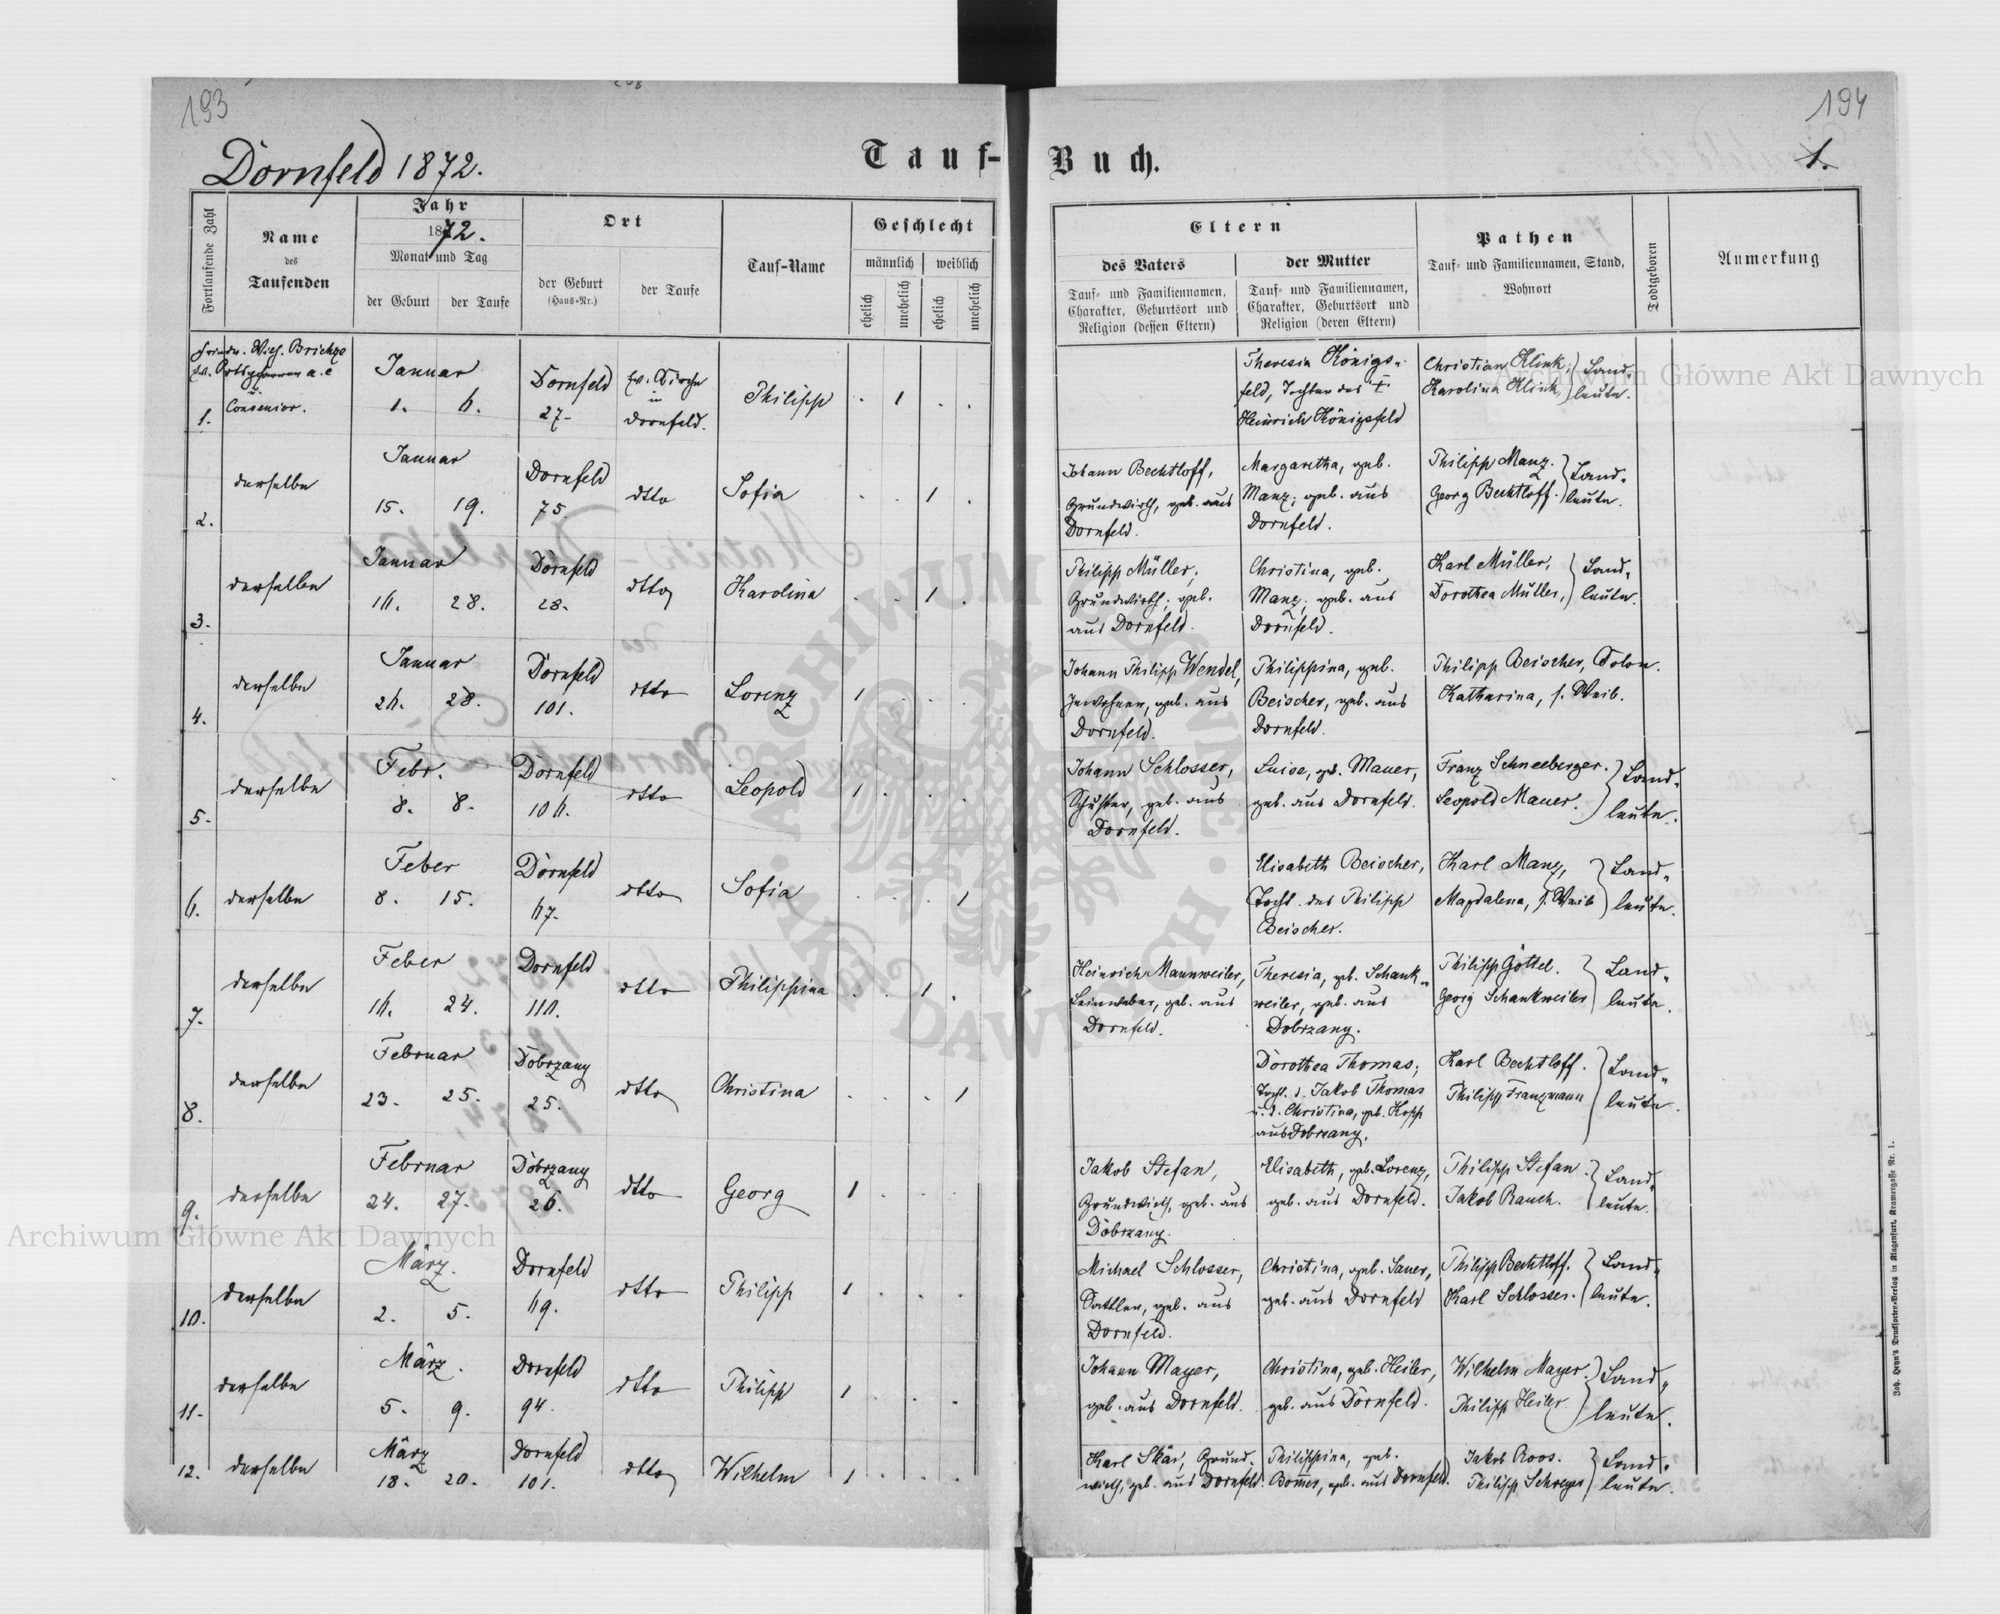 193
194
Dornfeld 1872.
Tauf-
Buch.
1.
Fortlaufende Zahl
Name
des
Taufenden
Jahr
1872.
Monat und Tag
der Geburt
der Taufe
Ort
der Geburt
(Haus-Nr.)
der Taufe
Tauf-Name
Geschlecht
männlich
weiblich
ehelich
unehelich
ehelich
unehelich
Eltern
des Vaters
Tauf- und Familiennamen,
Charakter, Geburtsort und
Religion (dessen Eltern)
der Mutter
Tauf- und Familiennamen,
Charakter, Geburtsort und
Religion (deren Eltern)
Pathen
Tauf- und Familiennamen, Stand,
Wohnort
Todtgeboren
Anmerkung
1.
Januar
1. 6.
Dornfeld
27.
ev. Kirche
in
Dornfeld.
Philipp
1
Theresia Königs-
feld, Tochter des †
Heinrich Königsfeld
Christian Klink,
Karolina Klink,
Land-
leute.
2.
derselbe
Januar
15. 19.
Dornfeld
75.
dtto
Sofia
1
Johann Bechtloff,
Grundwirth, geb. aus
Dornfeld.
Margaretha, geb.
Manz, geb. aus
Dornfeld.
Philipp Manz.
Georg Bechtloff.
Land-
leute.
3.
derselbe
Januar
16. 28.
Dornfeld
28.
dtto
Karolina
1
Philipp Müller,
Grundwirth, geb.
aus Dornfeld.
Christina, geb.
Manz, geb. aus
Dornfeld.
Karl Müller,
Dorothea Müller,
Land-
leute.
4.
derselbe
Januar
26. 28.
Dornfeld
101.
dtto
Lorenz
1
Johann Philipp Wendel,
Inwohner, geb. aus
Dornfeld.
Philippina, geb.
Beischer, geb. aus
Dornfeld.
Philipp Beischer, Kolon.
Katharina, s. Weib.
5.
derselbe
Febr.
8. 8.
Dornfeld
106.
dtto
Leopold
1
Johann Schlosser,
Schuster, geb. aus
Dornfeld.
Luise, geb. Mauer,
geb. aus Dornfeld.
Franz Schneeberger.
Leopold Mauer.
Land-
leute.
6.
derselbe
Feber
8. 15.
Dornfeld
67.
dtto
Sofia
1
Elisabeth Beischer,
Tocht. des Philipp
Beischer.
Karl Manz,
Magdalena, s. Weib
Land-
leute.
7.
derselbe
Feber
16. 24.
Dornfeld
110.
dtto
Philippina
1
Heinrich Mannweiler,
Leinweber, geb. aus
Dornfeld.
Theresia, geb. Schank-
weiler, geb. aus
Dobrzany.
Philipp Göttel.
Georg Schankweiler
Land-
leute.
8.
derselbe
Februar
23. 25.
Dobrzany
25.
dtto
Christina
1
Dorothea Thomas,
Tocht. d. Jakob Thomas
u. d. Christina, geb. Kopp
aus Dobrzany.
Karl Bechtloff.
Philipp Franzmann
Land-
leute.
9.
derselbe
Februar
24. 27.
Dobrzany
26.
dtto
Georg
1
Jakob Stefan,
Grundwirth, geb. aus
Dobrzany.
Elisabeth, geb. Lorenz,
geb. aus Dornfeld.
Philipp Stefan.
Jakob Rauch.
Land-
leute.
10.
derselbe
März.
2. 5.
Dornfeld
69.
dtto
Philipp
1
Michael Schlosser,
Sattler, geb. aus
Dornfeld.
Christina, geb. Sauer,
geb. aus Dornfeld
Philipp Bechtloff.
Karl Schlosser.
Land-
leute.
11.
derselbe
März.
5. 9.
Dornfeld
94.
dtto
Philipp
1
Johann Mayer,
geb. aus Dornfeld.
Christina, geb. Heiler,
geb. aus Dornfeld.
Wilhelm Mayer.
Philipp Heiler
Land-
leute.
12.
derselbe
März
18. 20.
Dornfeld
101.
dtto
Wilhelm
1
Karl Skär, Grund-
wirth, geb. aus Dornfeld.
Philippina, geb.
geb. aus Dornfeld.
Jakob Roos.
Philipp Schreyer
Land-
leute.
Joh. Heyn's Drucksorten-Verlag in Klagenfurt, Kramergasse Nr. 1.
Archiwum Główne Akt Dawnych
Archiwum Główne Akt Dawnych